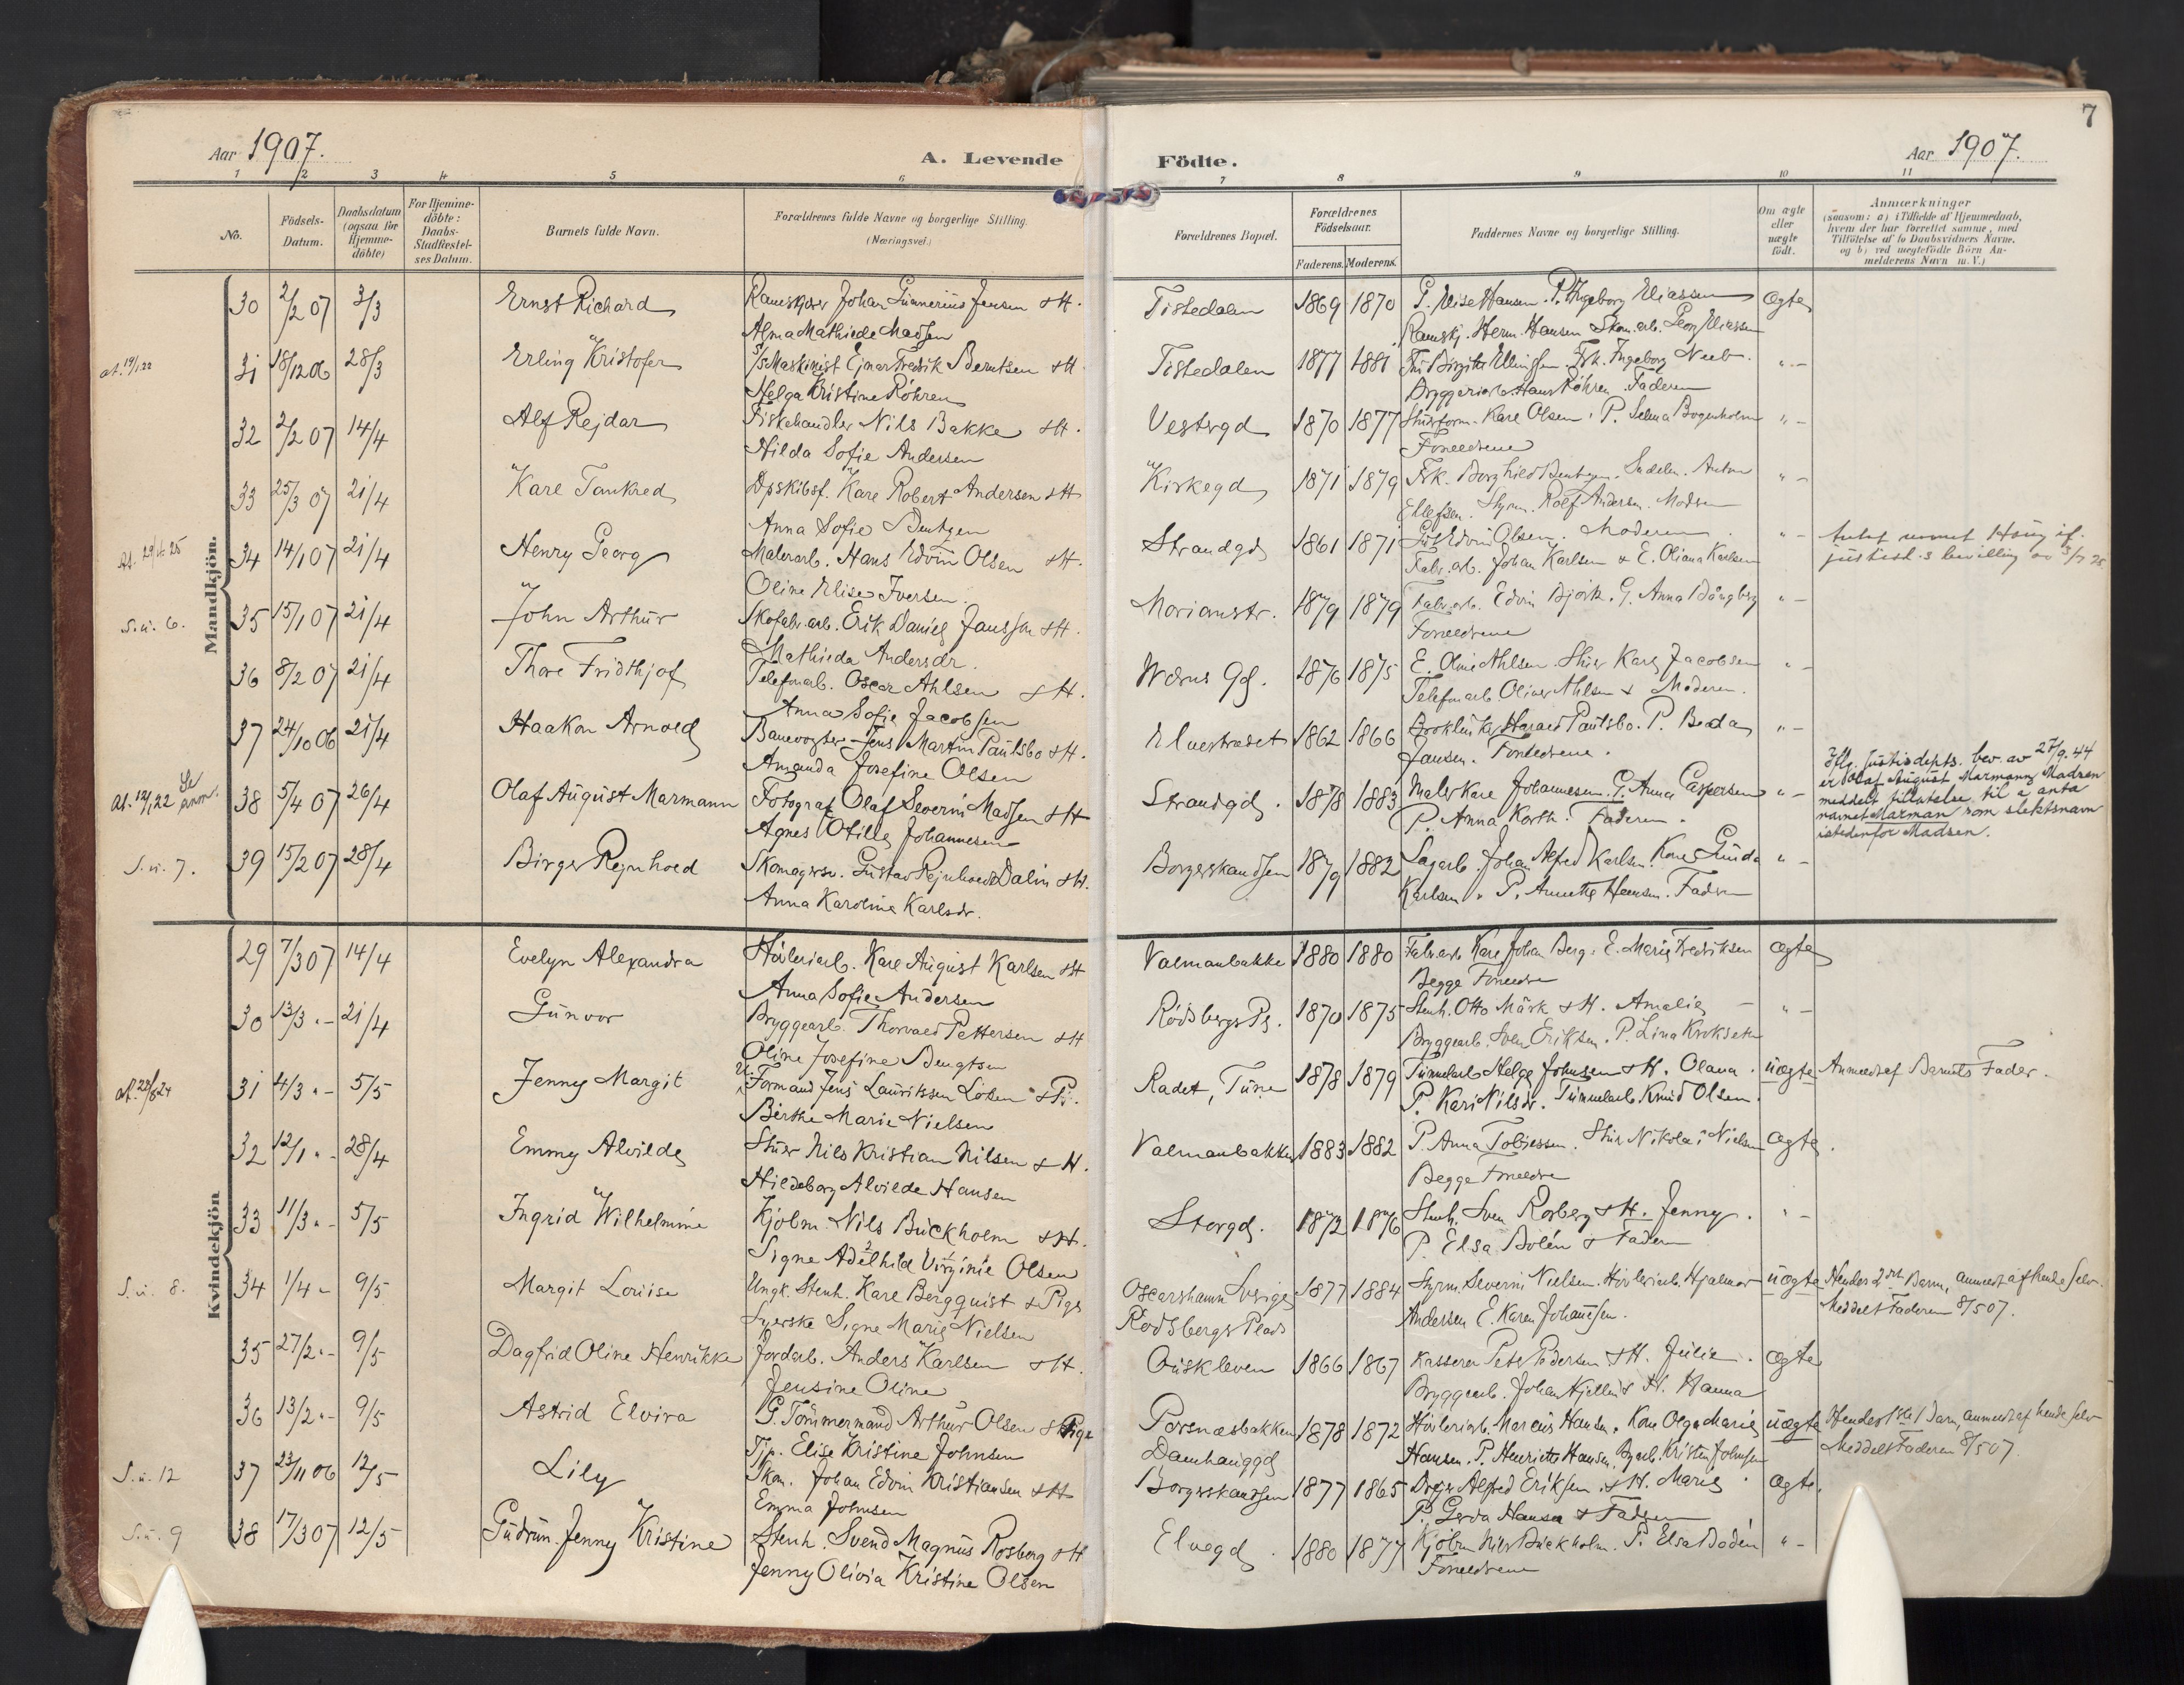 7
Aar 1907.
A. Levende
Födte.
Aar 1907.
1 2 3 4 5 6 7 8 9 10 11
No.
Födsels-
Datum.
Daabsdatum
(ogsaa for
Hjemme-
döbte)
For Hjemme-
döbte:
Daabs-
Stadfæstel-
ses Datum.
Barnets fulde Navn.
Forældrenes fulde Navne og borgerlige Stilling.
(Næringsvei.)
Forældrenes Bopæl.
Forældrenes
Födselsaar.
Faderens. Moderens.
Faddernes Navne og borgerlige Stilling.
Om ægte
eller
uægte
födt.
Anmærkninger
(saasom: a) i Tilfælde af Hjemmedaab,
hvem der har forrettet samme, med
Tilföielse af to Daabsvidners Navne,
og b) ved uegtefödte Börn An-
melderens Navn m. V.)
Mandkjön.
30 2/2 07 3/3 Ernst Richard Johan Gunnerius Jensen & H. Tistedalen 1869 1870 P. Elise Hansen. P. Ingeborg Eliassen Ægte
Alma Mathilde Madsen Herm. Hansen Georg Eliassen
at. 19/1 22 31 18/12 06 28/3 Erling Kristofer Maskinist Ejnar Fredrik Berntsen & H. Tistedalen 1877 1881 Frk. Ingeborg "-
Helga Kristine Röhren Hans Röhren. Faderen
32 2/2 07 14/4 Alf Rejdar Fiskehandler Nils Bakke & H. Vestergd 1870 1877 Karl Olsen. P. Selma Bogenholm "-
Hilda Sofie Andersen Forældrene
33 25/3 07 21/4 Karl Tankred Dpskibsf. Karl Robert Andersen & H Kirkegd 1871 1879 Frk. Borghild Bentzen. Anton "-
Anna Sofie Bentzen Ellefsen. Styrm. Rolf Andersen. Moderen
34 14/1 07 21/4 Henry Georg Malerarb. Hans Edvin Olsen & H. Strandgd 1861 1871 Edvin Olsen. Moderen "-
Oline Elise Iversen. Fabr.arb. Johan Karlsen & E. Oliana Karlsen
S.u. 6. 35 15/1 07 21/4 John Arthur Skofabr.arb. Erik Daniel Jansson & H. Morianstr. 1879 1879 Fabr.arb. Edvin Björk. G. Anna "-
Mathilda Andersdr. Forældrene
36 8/2 07 21/4 Thore Fridthjof Telefonarb. Oscar Ahlsen & H. Wærns Gd. 1876 1875 E. Oline Ahlsen. Stuer Karl Jacobsen "-
Anna Sofie Jacobsen Telefonarb. Oliver Ahlsen & Moderen.
37 24/10 06 21/4 Haakon Arnold Banevogter Jens Martin Paulsbo & H. Elvestrædet 1862 1866 Harald Paulsbo. P. Beda "-
Amanda Josefine Olsen Jansen. Forældrene.
At. 12/1 22 Se anm. 38 5/4 07 26/4 Olaf August Marmann Fotograf Olaf Severin Madsen & H Strandgd. 1878 1883 Maler Karl Johannesen. P. Anna Caspersen "-
Agnes Otilie Johannesen P. Anna Korth. Faderen.
Iflg. Justisdepts. bev. av 27/9. 44
er Olaf August Marmann Madsen
meddelt tillatelse til å anta
navnet Marman som slektsnavn
istedenfor Madsen.
S.u. 7. 39 15/2 07 28/4 Birger Rejnhold Skomagersv. Gustav Rejnhold Dalin & H. Borgerskandsen 1879 1882 Sagarb. Johan Alfred Karlsen. Kone Gunda "-
Anna Karolina Karlsdr. Karlsen. P. Annette Hansen. Faderen
Kvindekjön
29 7/3 07 14/4 Evelyn Alexandra Hövleriarb. Karl August Karlsen & H Valmanbakke 1880 1880 Fabr.arb. Karl Johan Berg. E. Marie Fredriksen Ægte
Anna Sofie Andersen Begge Forældre
30 13/3 "- 21/4 Gunvor Bryggearb. Thorvald Pettersen & H Rödsbergs Pl. 1870 1875 Stenh. Otto Märk & H. Amalie "-
Oline Josefine Bengtsen Bryggearb. Sven Eriksen. P. Lina
31 4/3 "- 5/5 Jenny Margit Formand Jens Lauritssen Löken & P. Radet, Tune 1878 1879 Tunnelarb. Helge Johnsen & H. Olava. uægte Anmeldt af Barnets Fader.
Birthe Marie Nielsen P. Kari Nilsdr. Tunnelarb. Knud Olsen.
32 12/1 "- 28/4 Emmy Alvilde Stuer Nils Kristian Nilsen & H. Valmanbakken 1883 1882 P. Anna Tobiessen. Stuer Nikolai Nielsen Ægte.
Hildeborg Alvilde Hansen Begge Forældre
33 11/3 "- 5/5 Ingrid Wilhelmine Kjöbm. Nils Buckholm & H. Storgd. 1872 1876 Stenh. Sven Rosberg & H. Jenny. "-
Signe Adelhild Virginie Olsen P. Elsa Bolén & Faderen
S.u. 8. 34 1/4 "- 9/5 Margit Louise Ungk. Stenh. Karl Bergquist & Pige Oscarshamn Sverige 1877 1884 Styrm. Severin Nielsen. Hövleriarb. Hjalmar uægte Hendes 2det Barn, anmeldt af hende selv.
Syerske Signe Marie Nielsen Rödsbergs Plads Andersen E. Karen Johansen. Meddelt Faderen 8/5 07.
35 27/2 "- 9/5 Dagfrid Oline Henrikke Jordarb. Anders Karlsen & H. Öuskleven 1866 1867 Kasserer Peter Pedersen & H. Julie. Ægte
Jensine Oline Bryggearb. Johan Kjellin & H. Hanna
36 13/2 "- 9/5 Astrid Elvira G. Tömmermand Arthur Olsen & Pige Porsnæsbakken 1878 1872 Hövleriarb. Marcus Hansen. Kone Olga Marie uægte Hendes 1ste Barn, anmeldt af hende selv
Tjp. Elise Kristine Johnsen Damhauggd Hansen. P. Henriette Hansen. Kristen Johnsen Meddelt Faderen 8/5 07.
S.u. 12 37 23/11 06 12/5 Lily Skom. Johan Edvin Kristiansen & H Borgerskandsen 1877 1865 Alfred Eriksen & H. Marie. Ægte.
Emma Johnsen P. Gerda Hansen & Faderen
S.u. 9 38 17/3 07 12/5 Gudrun Jenny Kristine Stenh. Svend Magnus Rosberg & H Elvegd. 1880 1877 Kjöbm. Nils Buckholm. P. Elsa Bodén "-
Jenny Olivia Kristine Olsen Forældrene